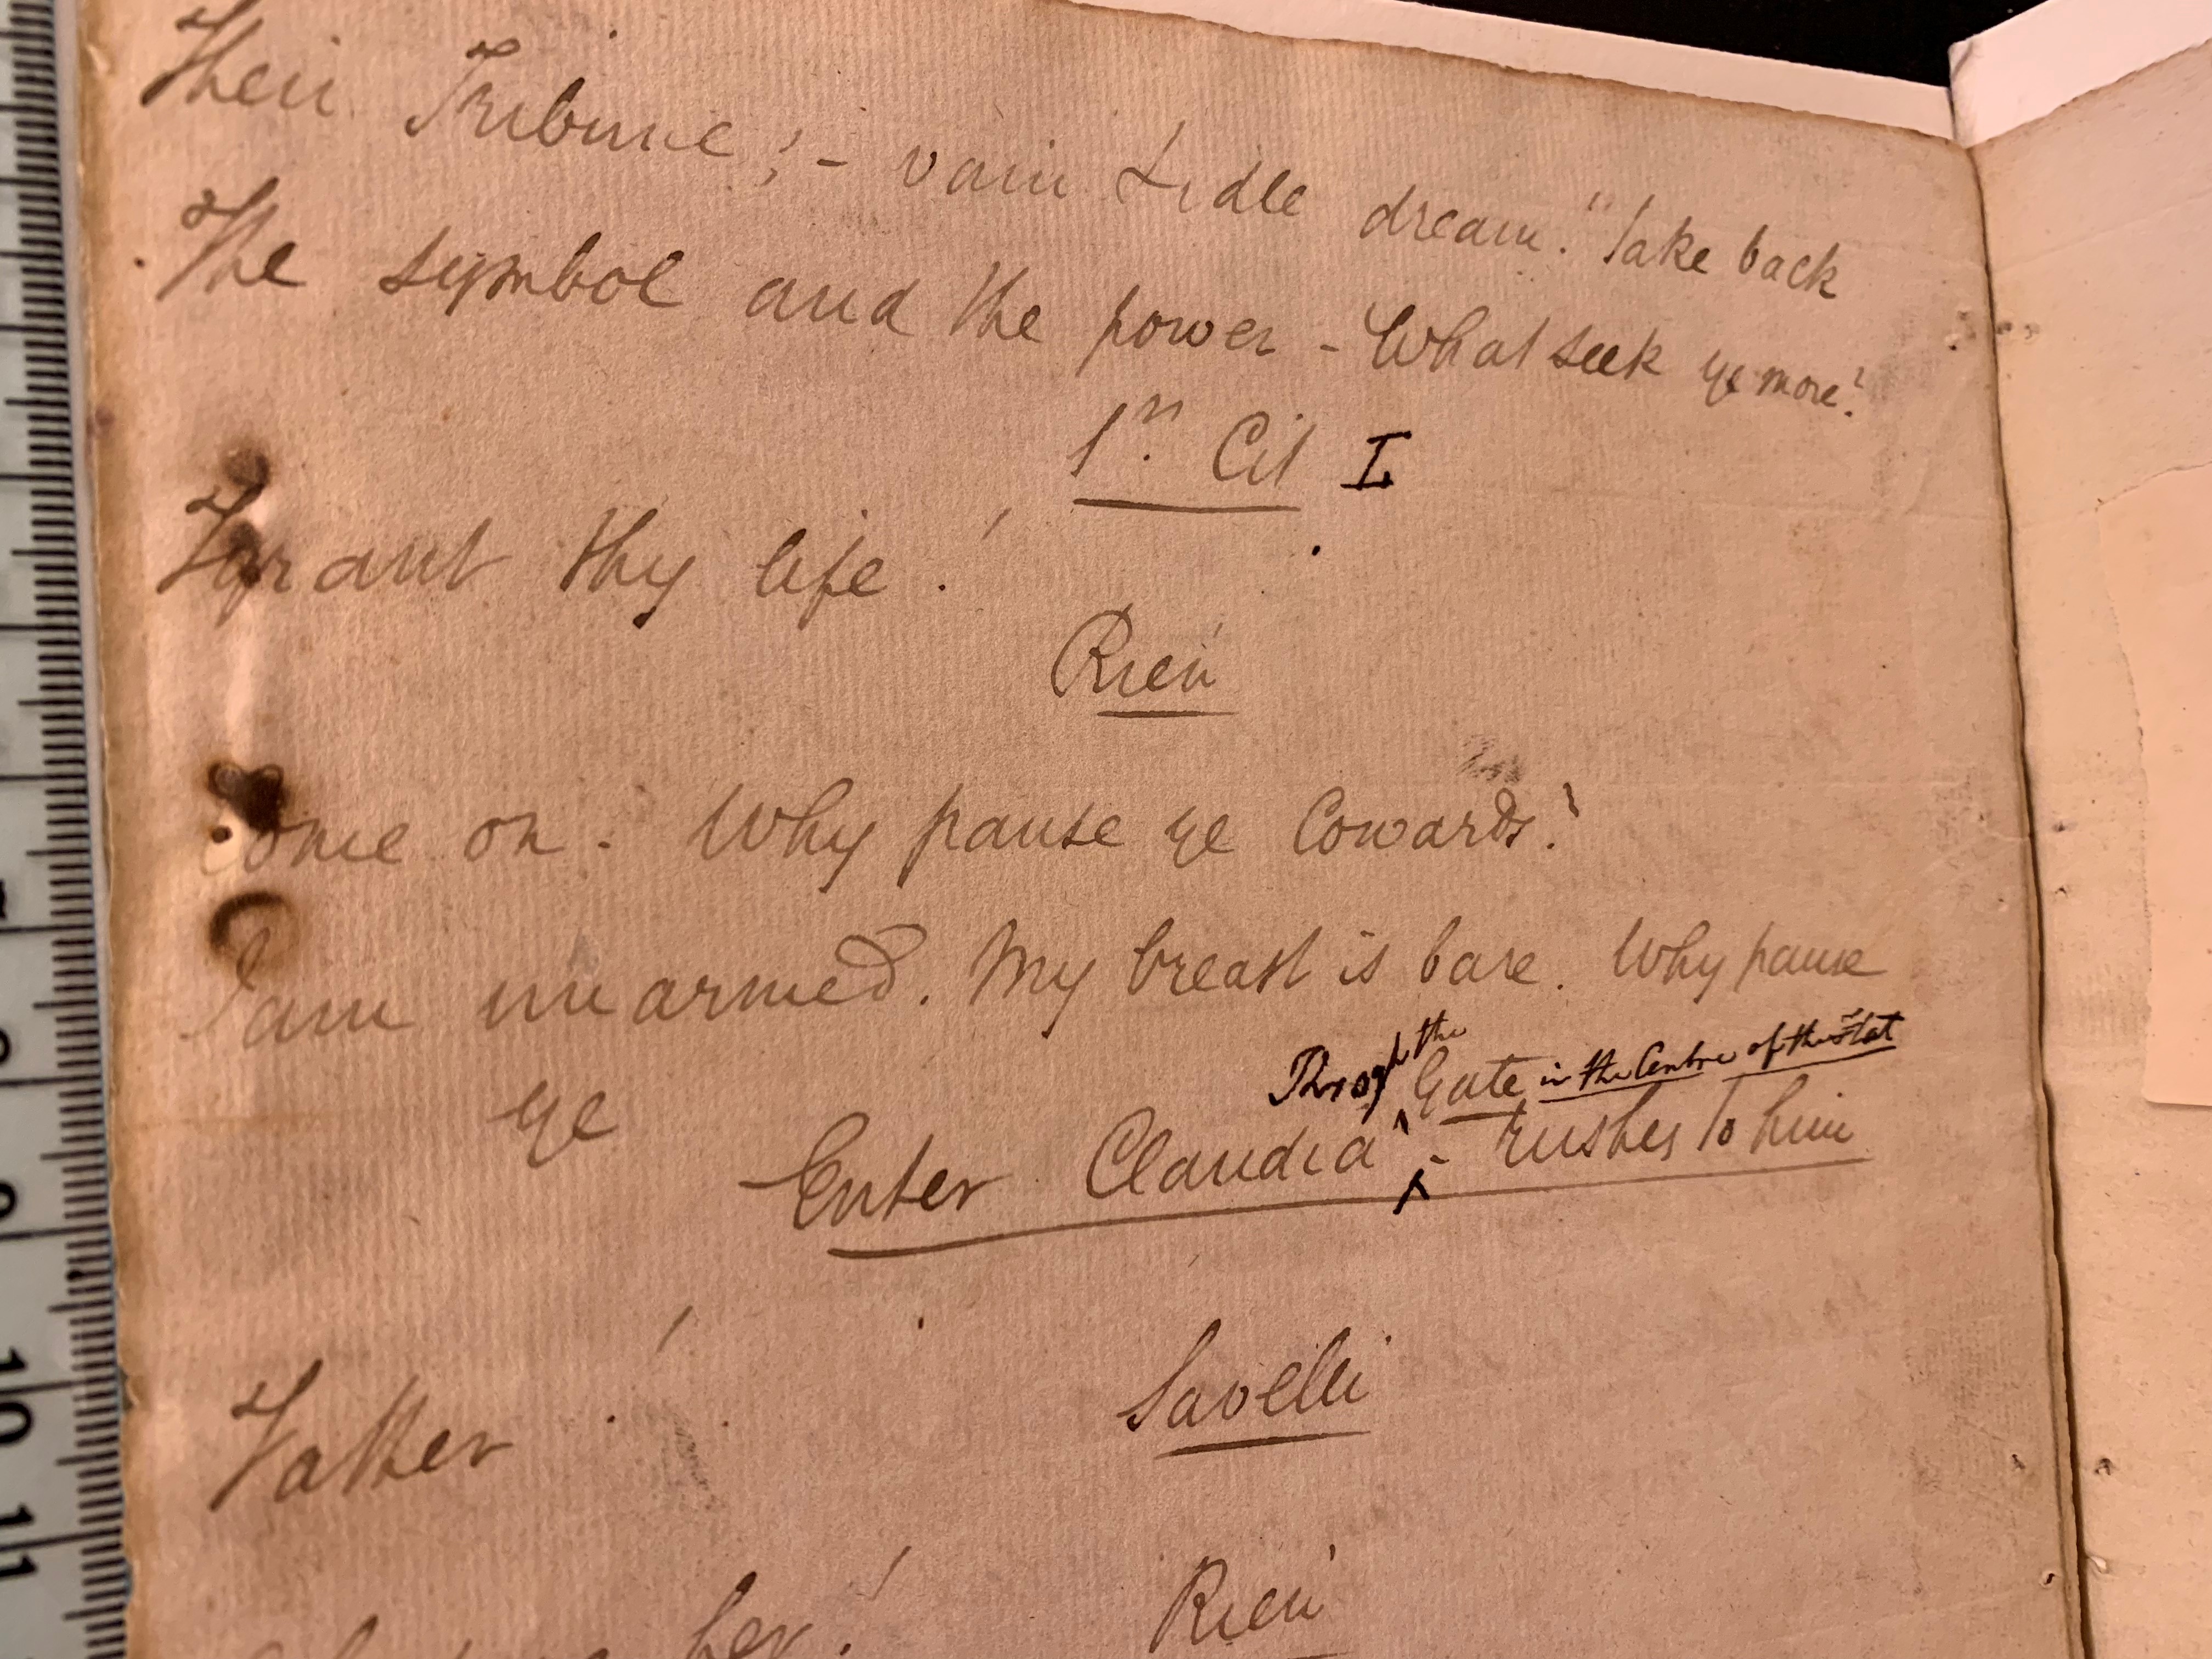 Their Tribune; - vain & idle dream! Take back
The symbol and the power - What seek ye more?
1st. Cit I
Tyrant thy life!
Rien
Come on. Why pause ye Cowards?
I am unarmed. My breast is bare. Why pause
ye
Throgh the Gate in the Centre of the Flat
Enter Claudia - rushes to him
Savelli
Father!
Rien
her!
7
8
9
10
11